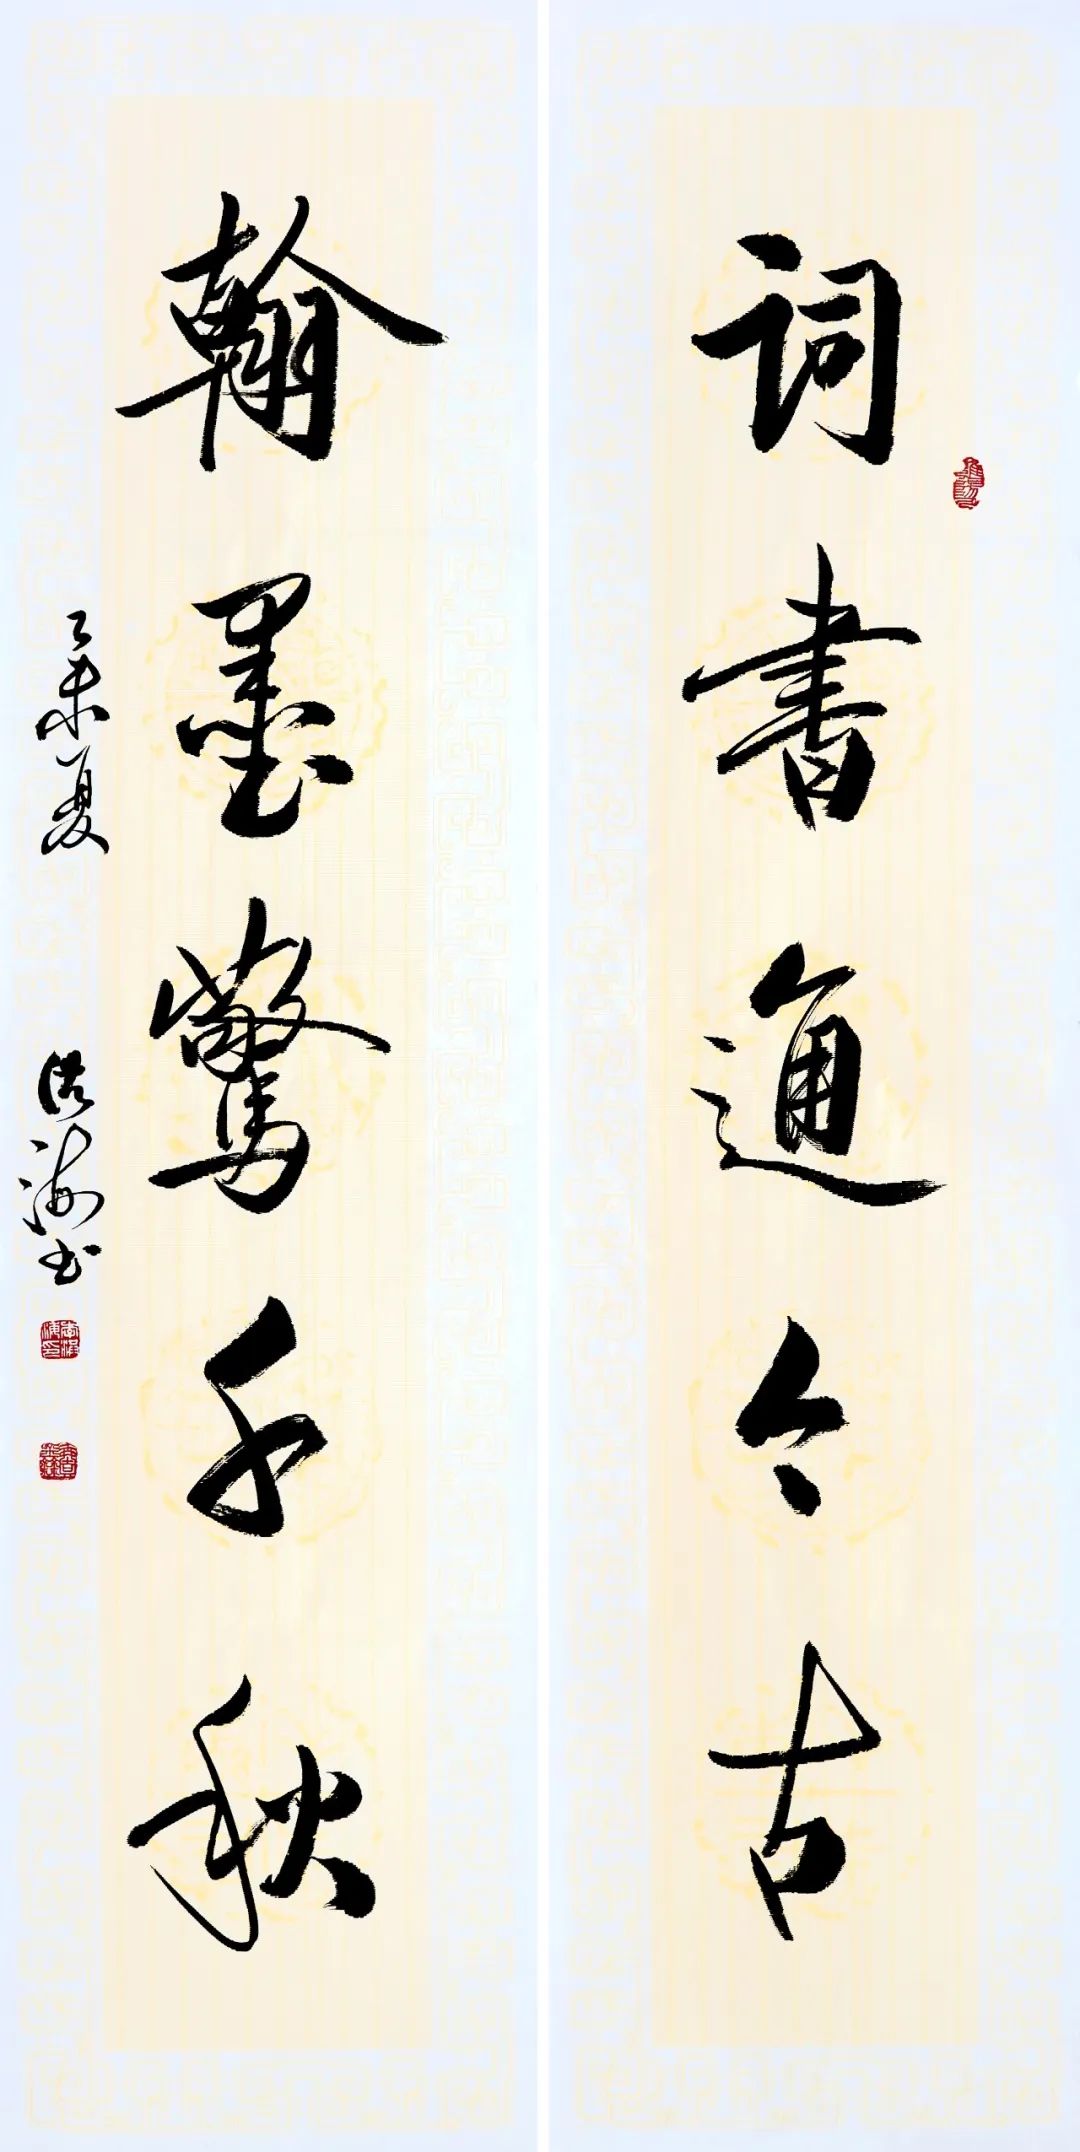 词書通今古
翰墨驚千秋
乙未夏
洪海书